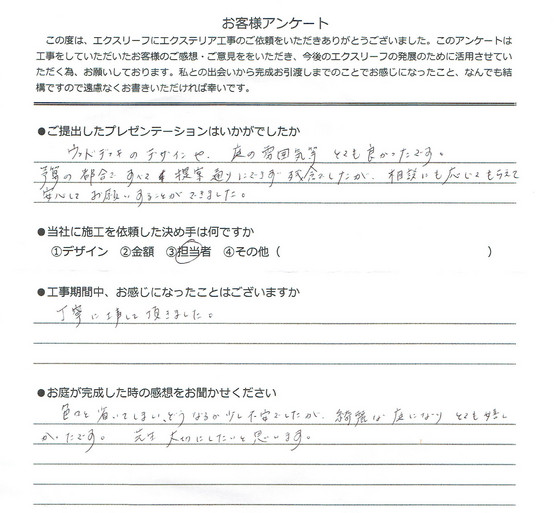 お客様アンケート
この度は、エクスリーフにエクステリア工事のご依頼をいただきありがとうございました。このアンケートは
工事をしていただいたお客様のご感想・ご意見ををいただき、今後のエクスリーフの発展のために活用させてい
ただく為、お願いしております。私との出会いから完成お引渡しまでのことでお感じになったこと、なんでも結
構ですので遠慮なくお書きいただければ幸いです。
●ご提出したプレゼンテーションはいかがでしたか
ウッドデッキのデザインや、庭の雰囲気等 とても良かったです。
予算の都合で すべて 提案通りにできず残念でしたが、相談にも応じてもらえて
安心してお願いすることができました。
●当社に施工を依頼した決め手は何ですか
①デザイン ②金額 ③担当者 ④その他（ ）
●工事期間中、お感じになったことはございますか
丁寧に工事して頂きました。
●お庭が完成した時の感想をお聞かせください
色々と省いてしまい、どうなるか少し不安でしたが、綺麗な庭になり とても嬉し
かったです。 大切にしたいと思います。